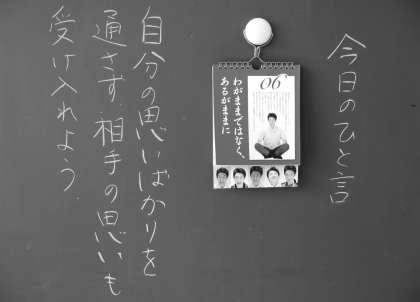 今日のひと言
06
わがままではなく、
あるがままに
自分の思いばかりを
通さず、相手の思いも
受け入れよう.